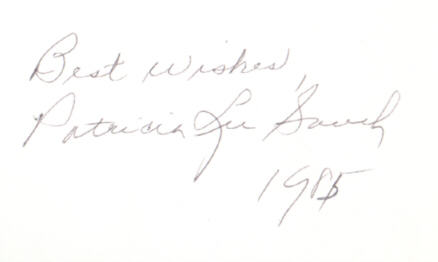 Best Wishes,
Patricia Lee Gauch
1985